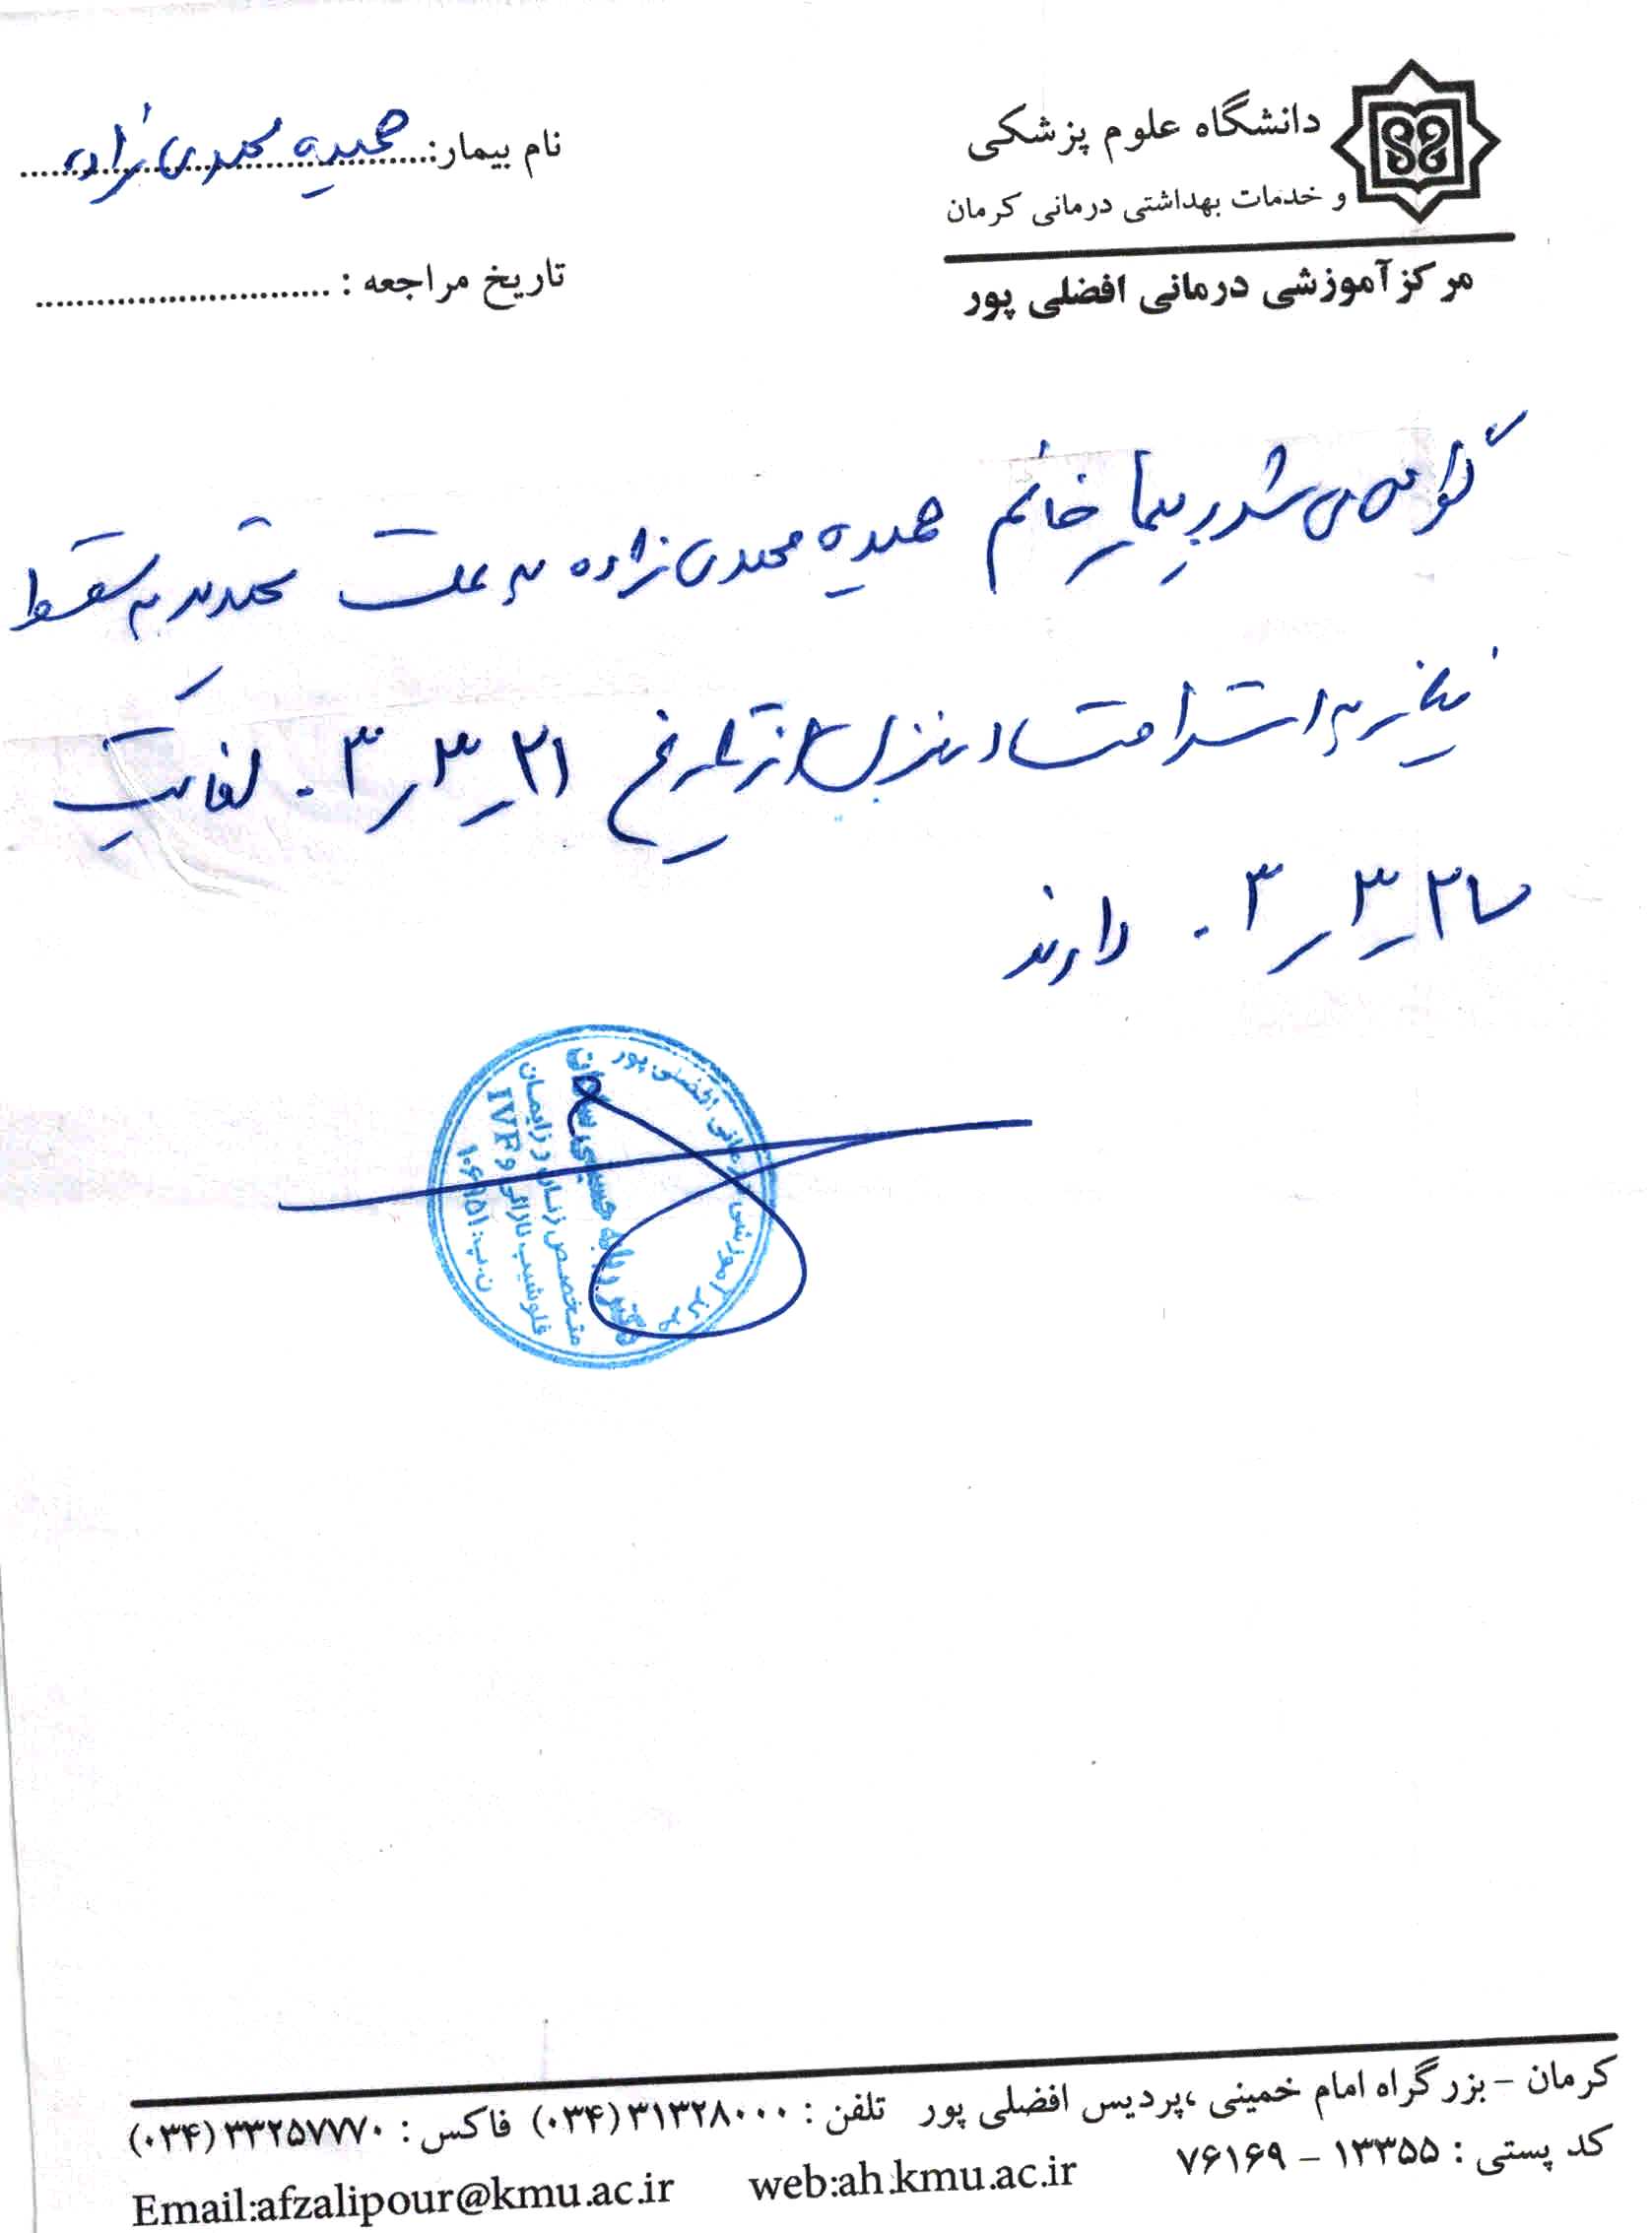 دانشگاه علوم پزشکی
و خدمات بهداشتی درمانی کرمان
مرکز آموزشی درمانی افضلی پور
نام بیمار: حمیده محمدی زاده
تاریخ مراجعه :
گواهی می شود بیمار خانم حمیده محمدی زاده به علت تهدید به سقط
نیاز به استراحت در منزل از تاریخ ۲۱ ر۳ ر۰۳ لغایت
ر۳ ر۰۳ دارند
مرکز آموزشی درمانی افضلی پور
دکتر ربابه حسینی
متخصص زنان و زایمان
فلوشیپ نازائی و IVF
ن.پ:
کرمان - بزرگراه امام خمینی ،پردیس افضلی پور تلفن : ۳۱۳۲۸۰۰۰ (۰۳۴) فاکس : ۳۳۲۵۷۷۷۰ (۰۳۴)
کد پستی : ۱۳۳۵۵ - ۷۶۱۶۹ web:ah.kmu.ac.ir Email:afzalipour@kmu.ac.ir